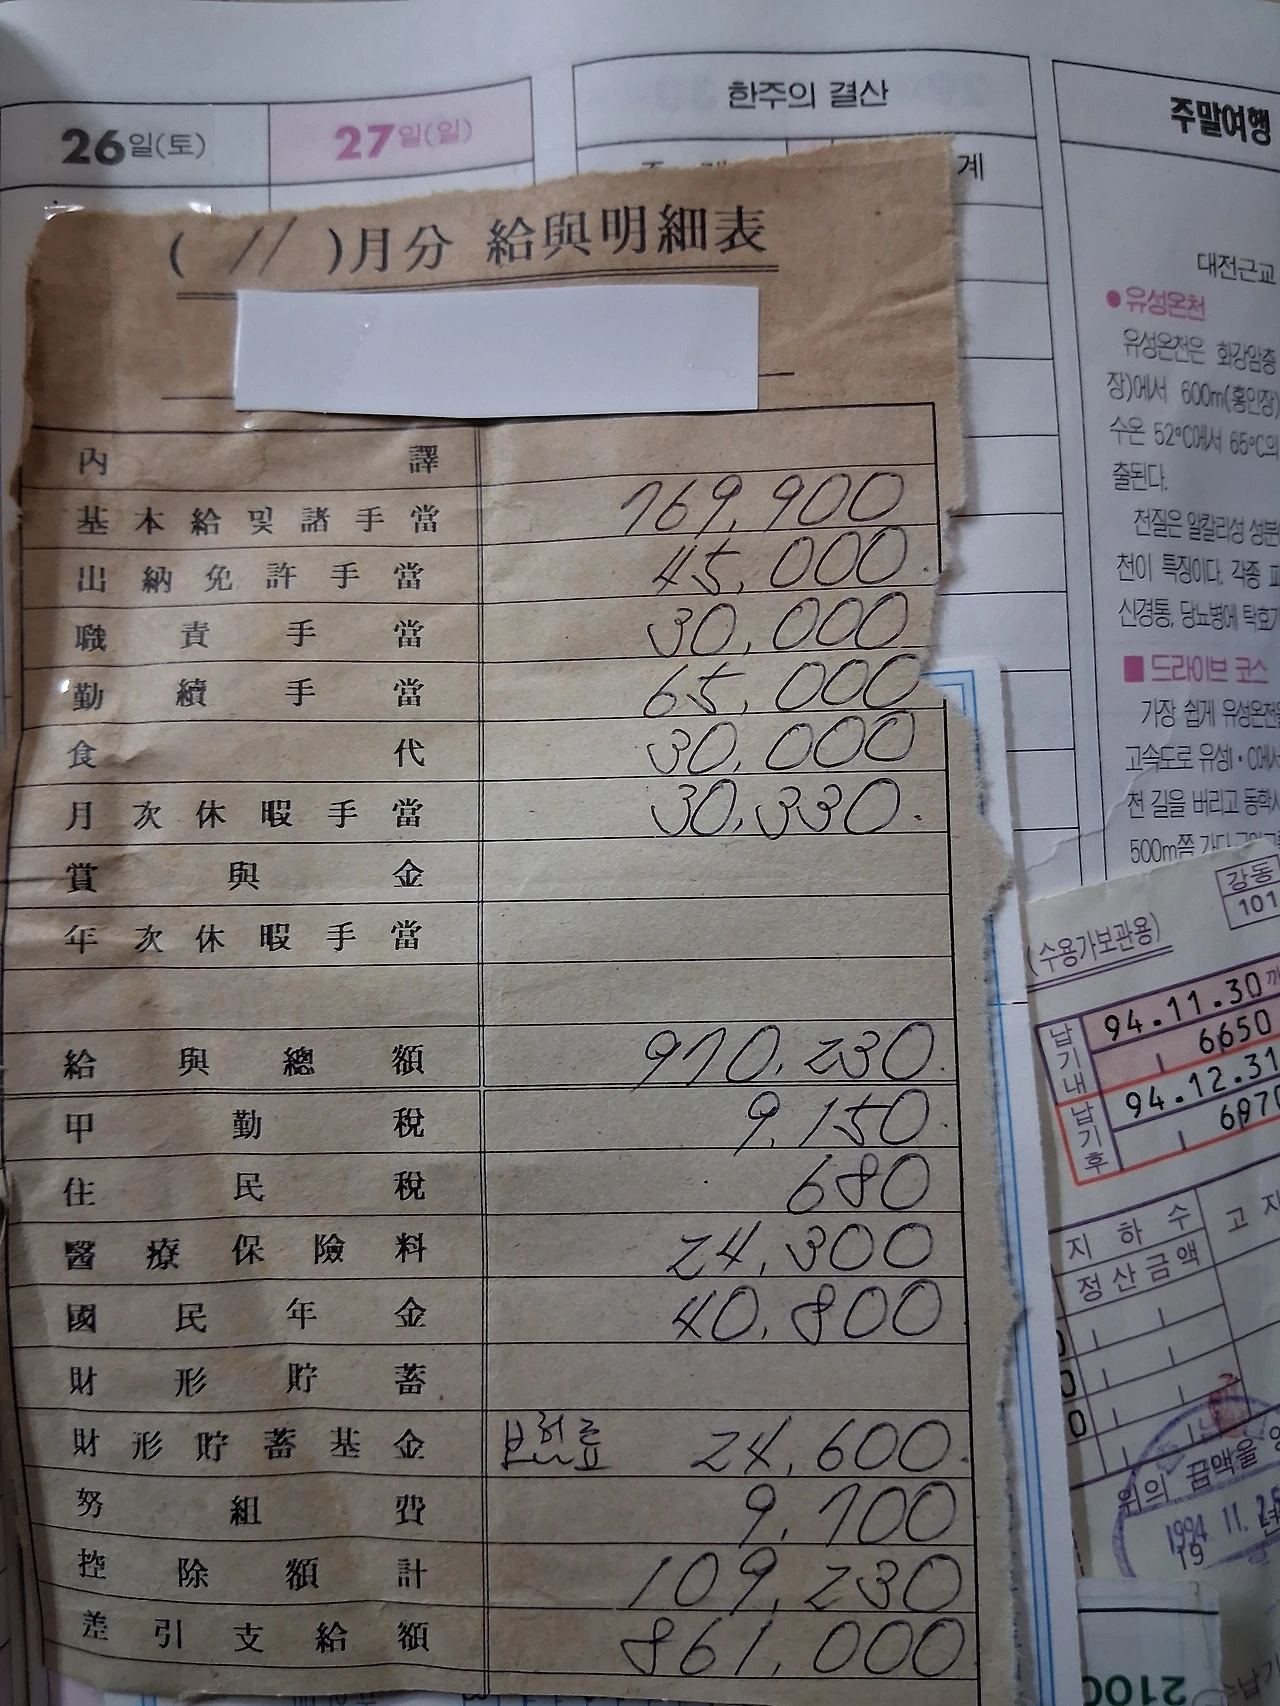 26일(토)
27일(일)
한주의 결산
계
( 11 )月分 給與明細表
内譯
基本給및諸手當 769,900
出納免許手當 45,000
職責手當 30,000
勤續手當 65,000
食代 30,000
月次休暇手當 30,330
賞與金
年次休暇手當
給與總額 970,230
甲勤稅 9,150
住民稅 680
醫療保險料 24,300
國民年金 40,800
財形貯蓄
財形貯蓄基金 보험료 24,600
努組費 9,700
控除額計 109,230
差引支給額 861,000
주말여행
대전근교
● 유성온천
유성온천은 화강암층
장)에서 600m(홍인장)
수온 52°C에서 65°C의
출된다.
천질은 알칼리성 성분
천이 특징이다. 각종 피
신경통, 당뇨병에 탁효가
■ 드라이브 코스
가장 쉽게 유성온천을
고속도로 유성I·C에서
천 길을 버리고 동학사
500m쯤 가다
강동
101
(수용가보관용)
납기내 94.11.30까
6650
납기후 94.12.31
6970
지하수
고지
정산금액
위의 금액을 영
1994 11. 25
19
2100